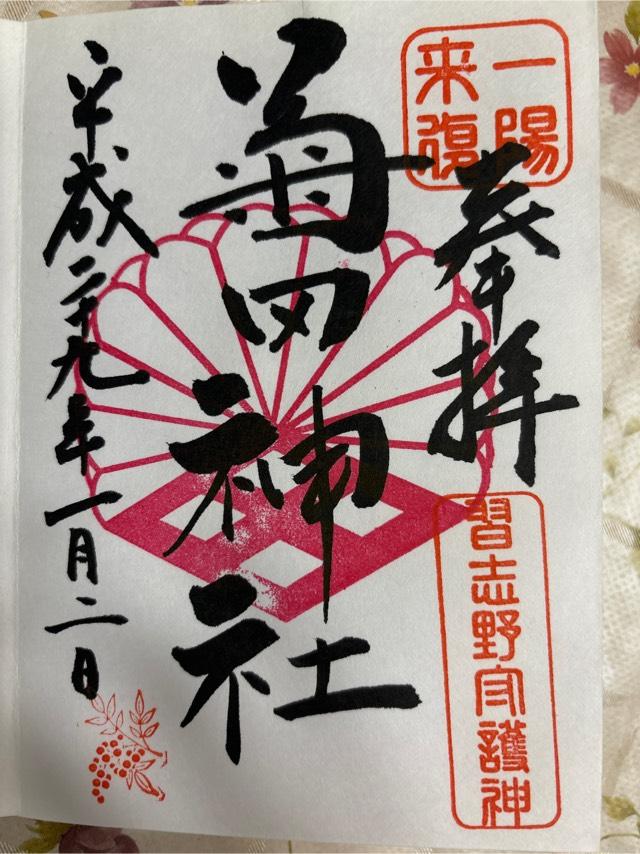 一陽
来復
奉拝
習志野守護神
菊田神社
平成二十九年一月二日